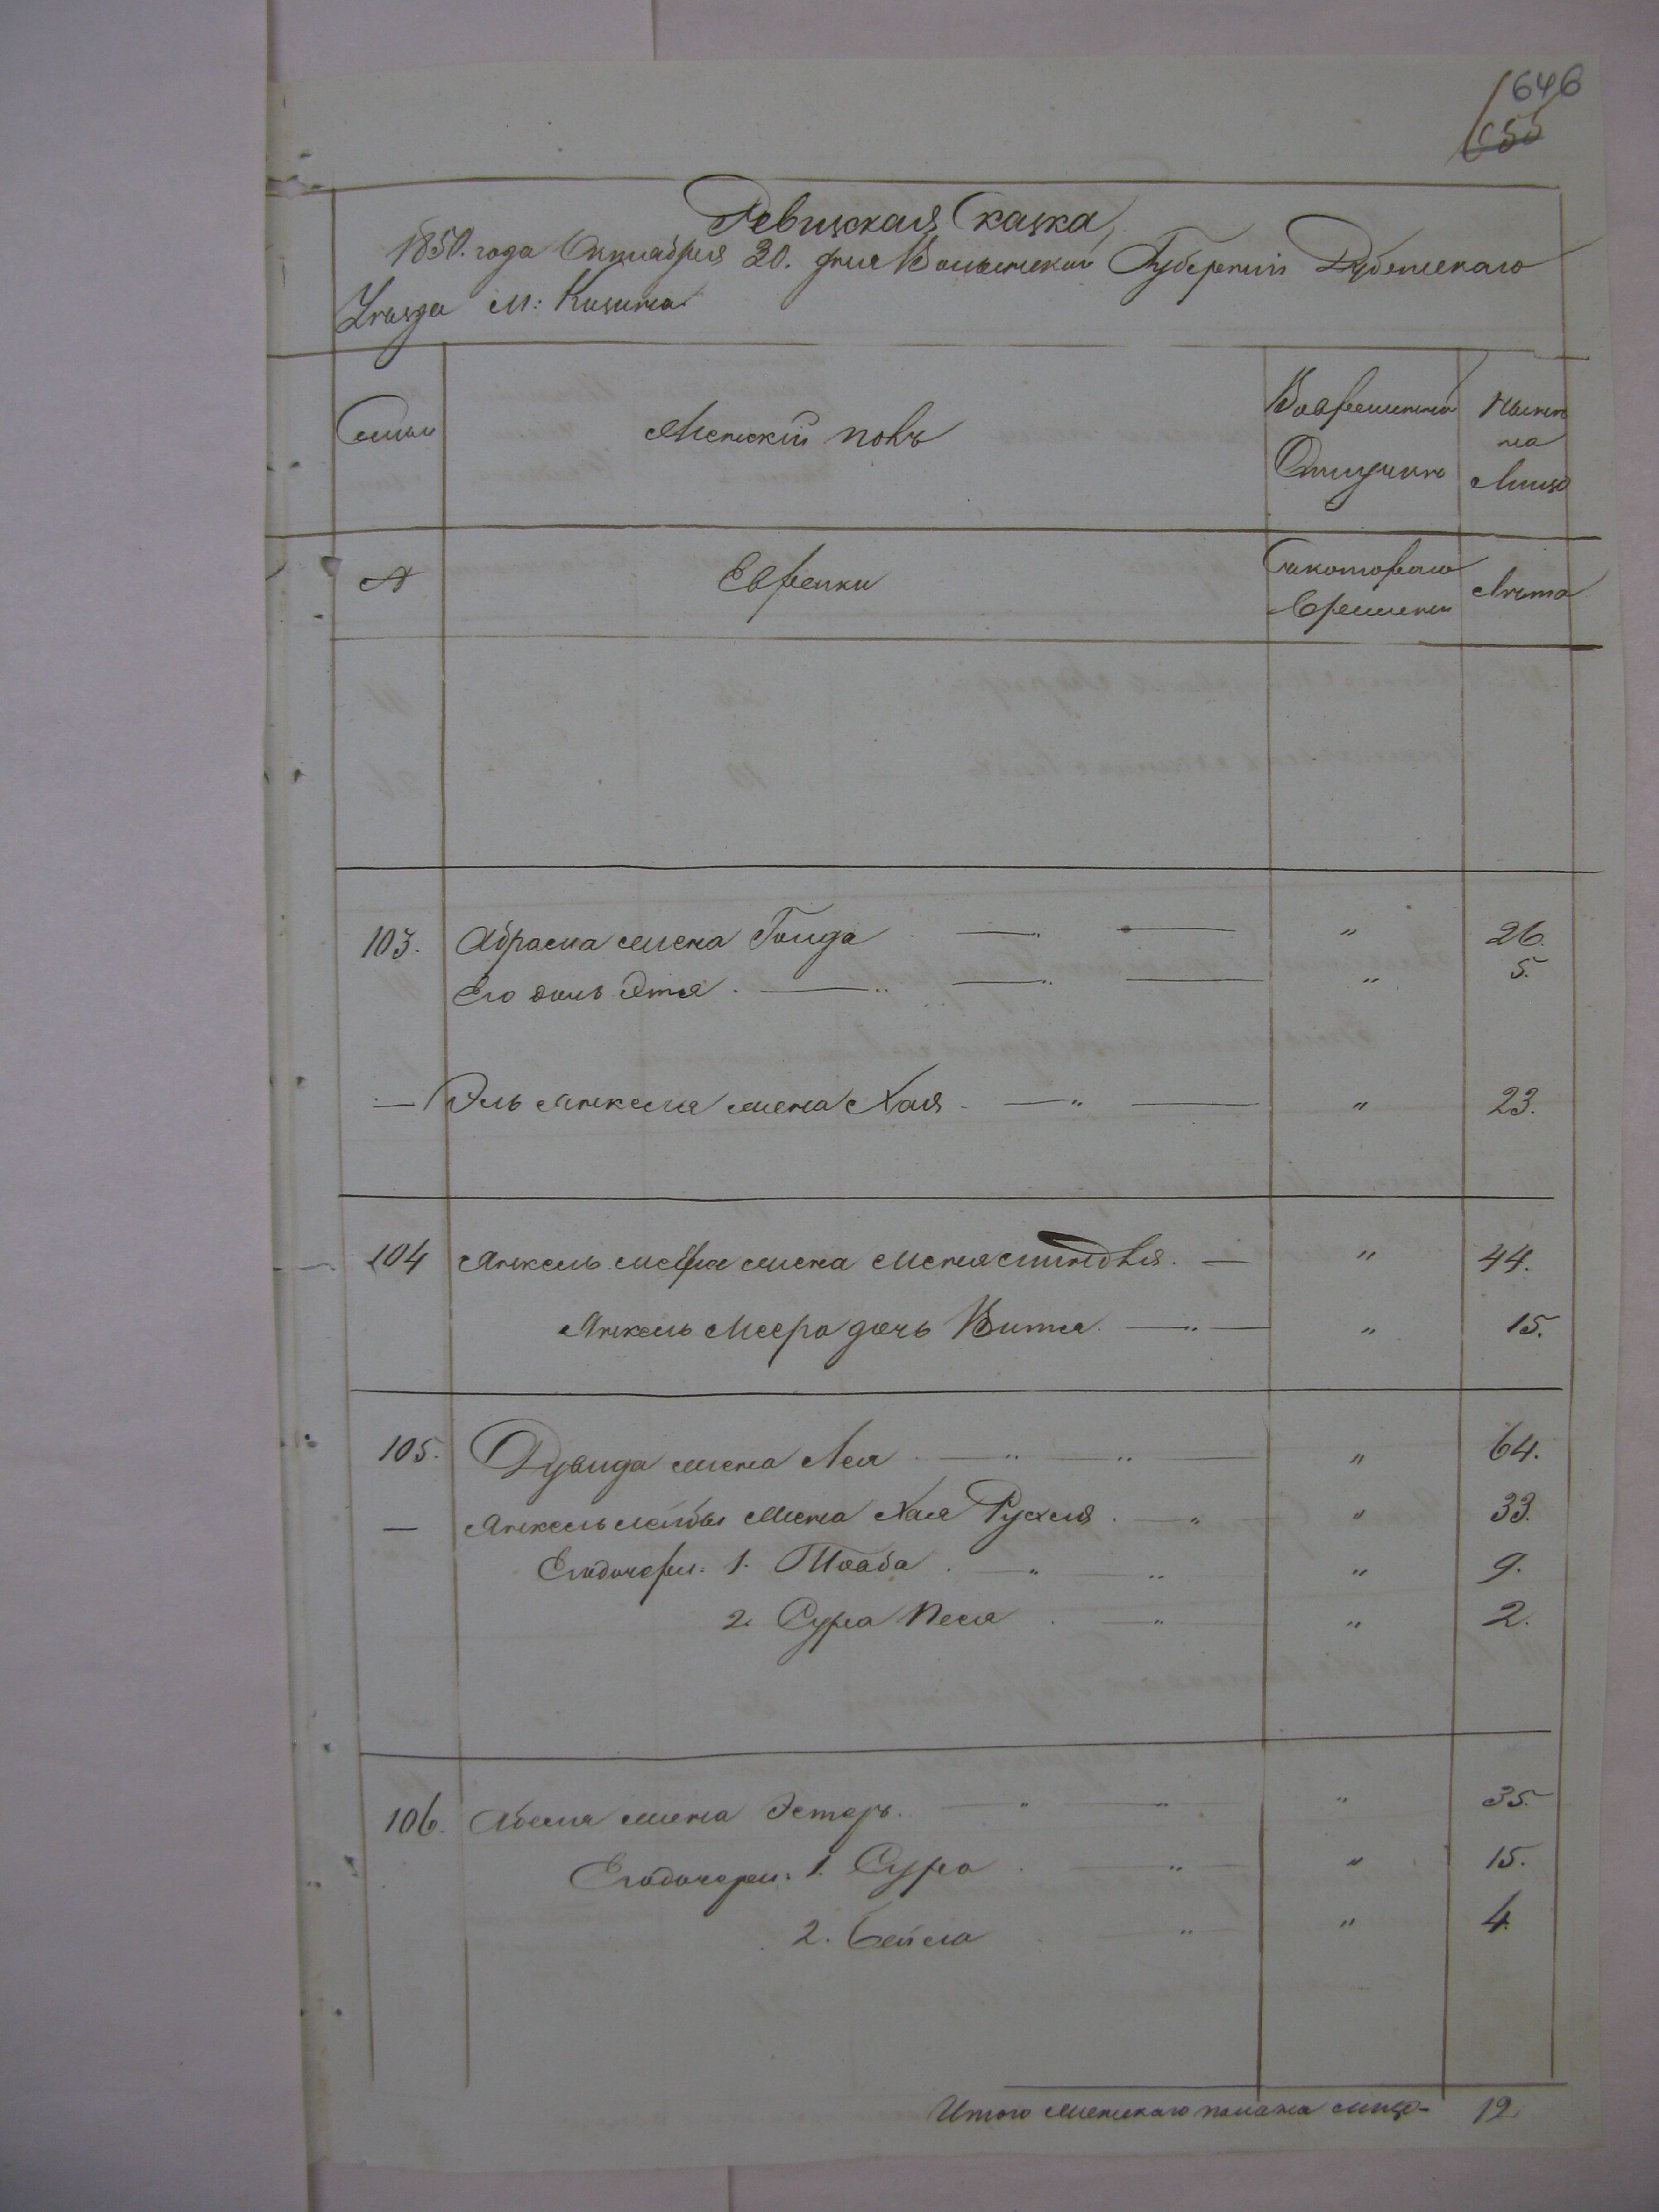 646
655
Ревизская Сказка,
1850. года Октября 30. дня Волынской Губернiи Дубенскаго
Уезда М: Козина
Семьи
Женскiй полъ
Во временной Отлучкѣ
Нынѣ на Лицо
А
Еврейки
Съкотораго Времени
Лѣта
103. Абрама жена Голда — „ — „ 26.
Его дочь Этя. — „ — „ — „ 5.
— Эль Янкеля жена Хая — „ — „ 23.
104 Янкель Меера жена — „ 44.
Янкель Меера дочь Витя. — „ — „ 15.
105. Дувида жена Лея — „ — „ — „ 64.
— Янкель Лейбы Жена Хая Рухля. — „ „ 33.
Егодочери: 1. Тоаба. — „ — „ „ 9.
2. Сура Песя — „ — „ 2.
106. Абеля жена Эстеръ. — „ — „ — „ 35.
Егодочери: 1. Сура — „ — „ 15.
2. Бейла — „ — „ 4.
Итого женскаго пола на лицо - 12